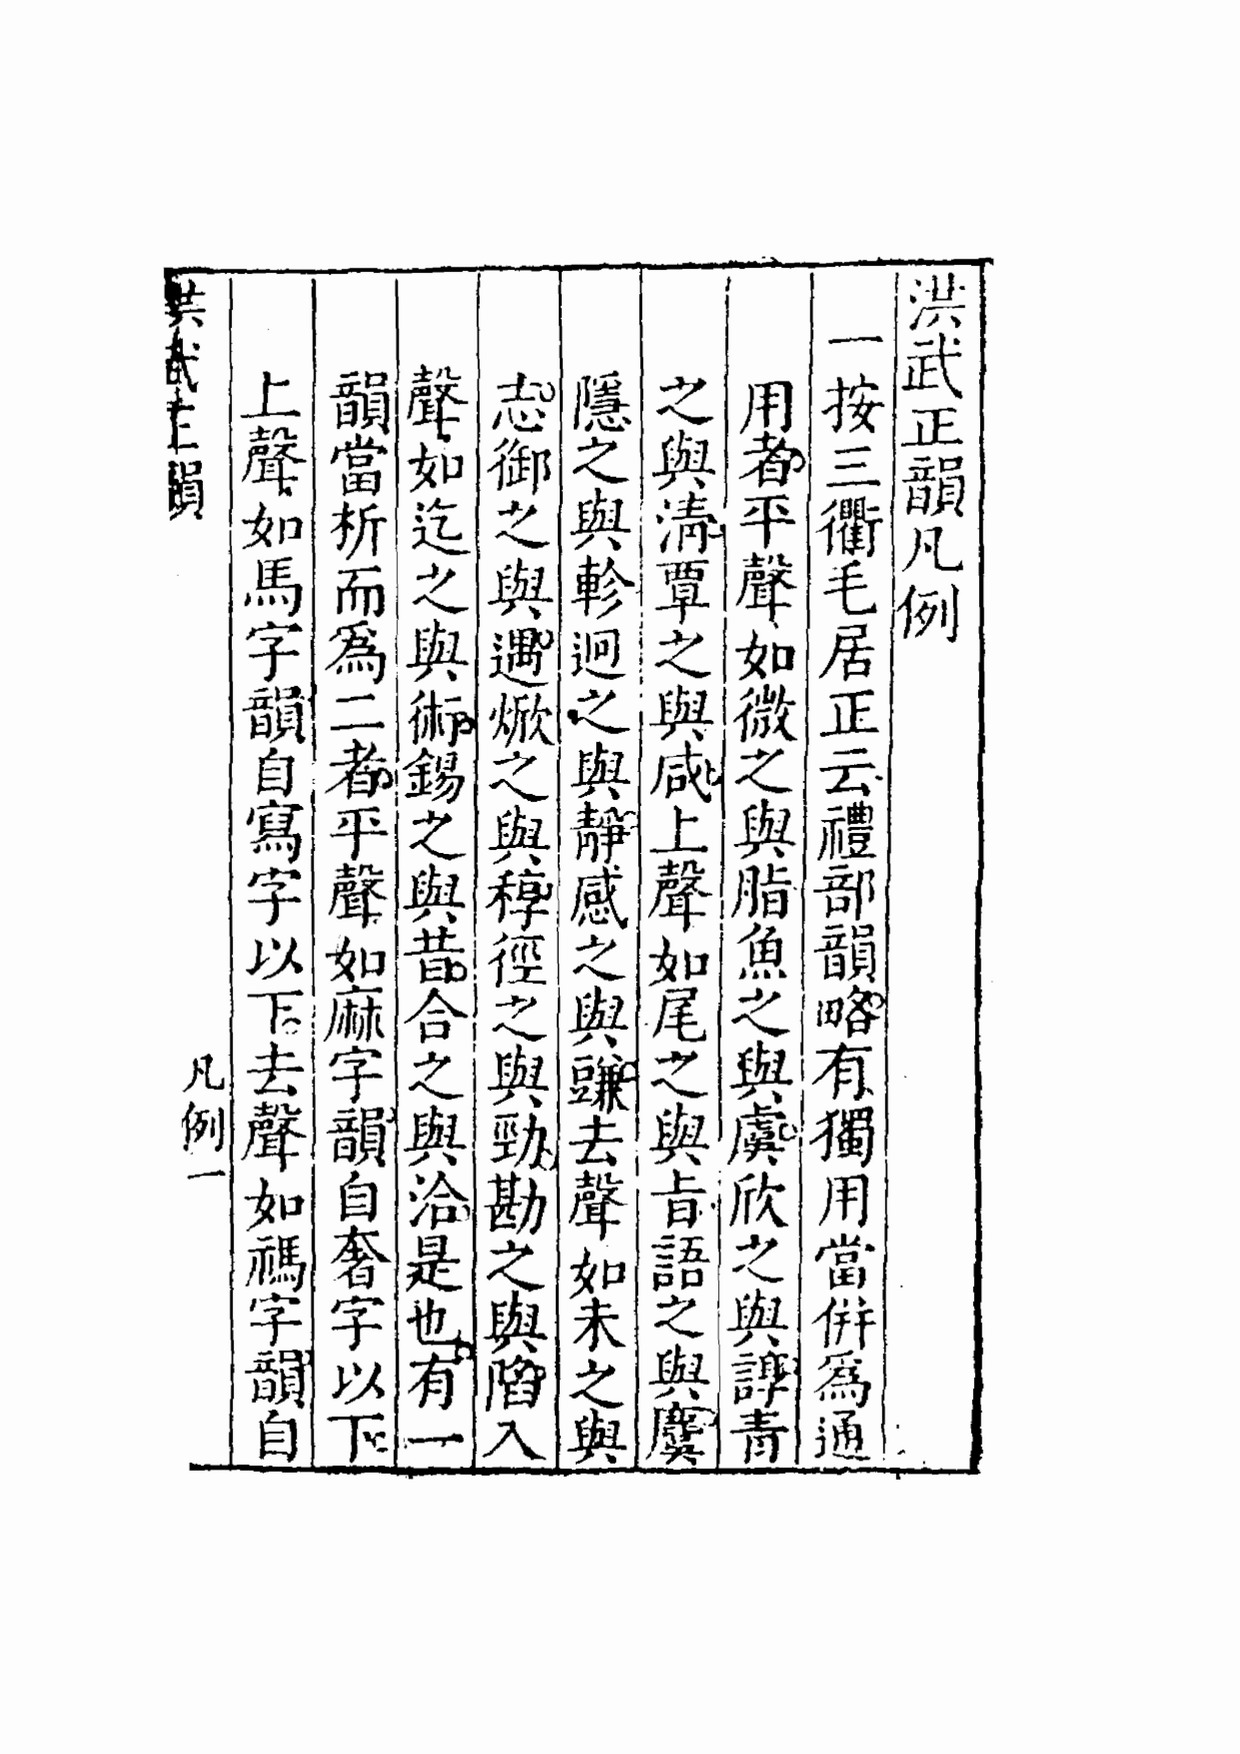 洪武正韻凡例
一按三衢毛居正云禮部韻略有獨用當併爲通
用者平聲如微之與脂魚之與虞欣之與諄青
之與淸覃之與咸上聲如尾之與旨語之與麌
隱之與軫迥之與靜感之與豏去聲如未之與
志御之與遇焮之與稕徑之與勁勘之與陷入
聲如迄之與術錫之與昔合之與洽是也有一
韻當析而爲二者平聲如麻字韻自奢字以下
上聲如馬字韻自寫字以下去聲如禡字韻自
洪武正韻
凡例一